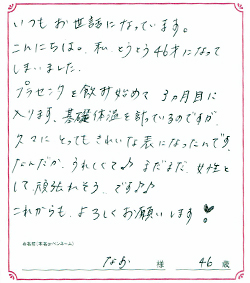 いつもお世話になっています。
こんにちは。私、とうとう46才になって
しまいました。
プラセンタを飲み始めて3ヵ月目に
入ります。基礎体温を計っているのですが、
久々にとってもきれいな表になったんです。
なんだか、うれしくて♪まだまだ、女性と
して頑張れそう、です♪♪
これからも、よろしくお願いします!
お名前(本名orペンネーム)
なお 様 46 歳